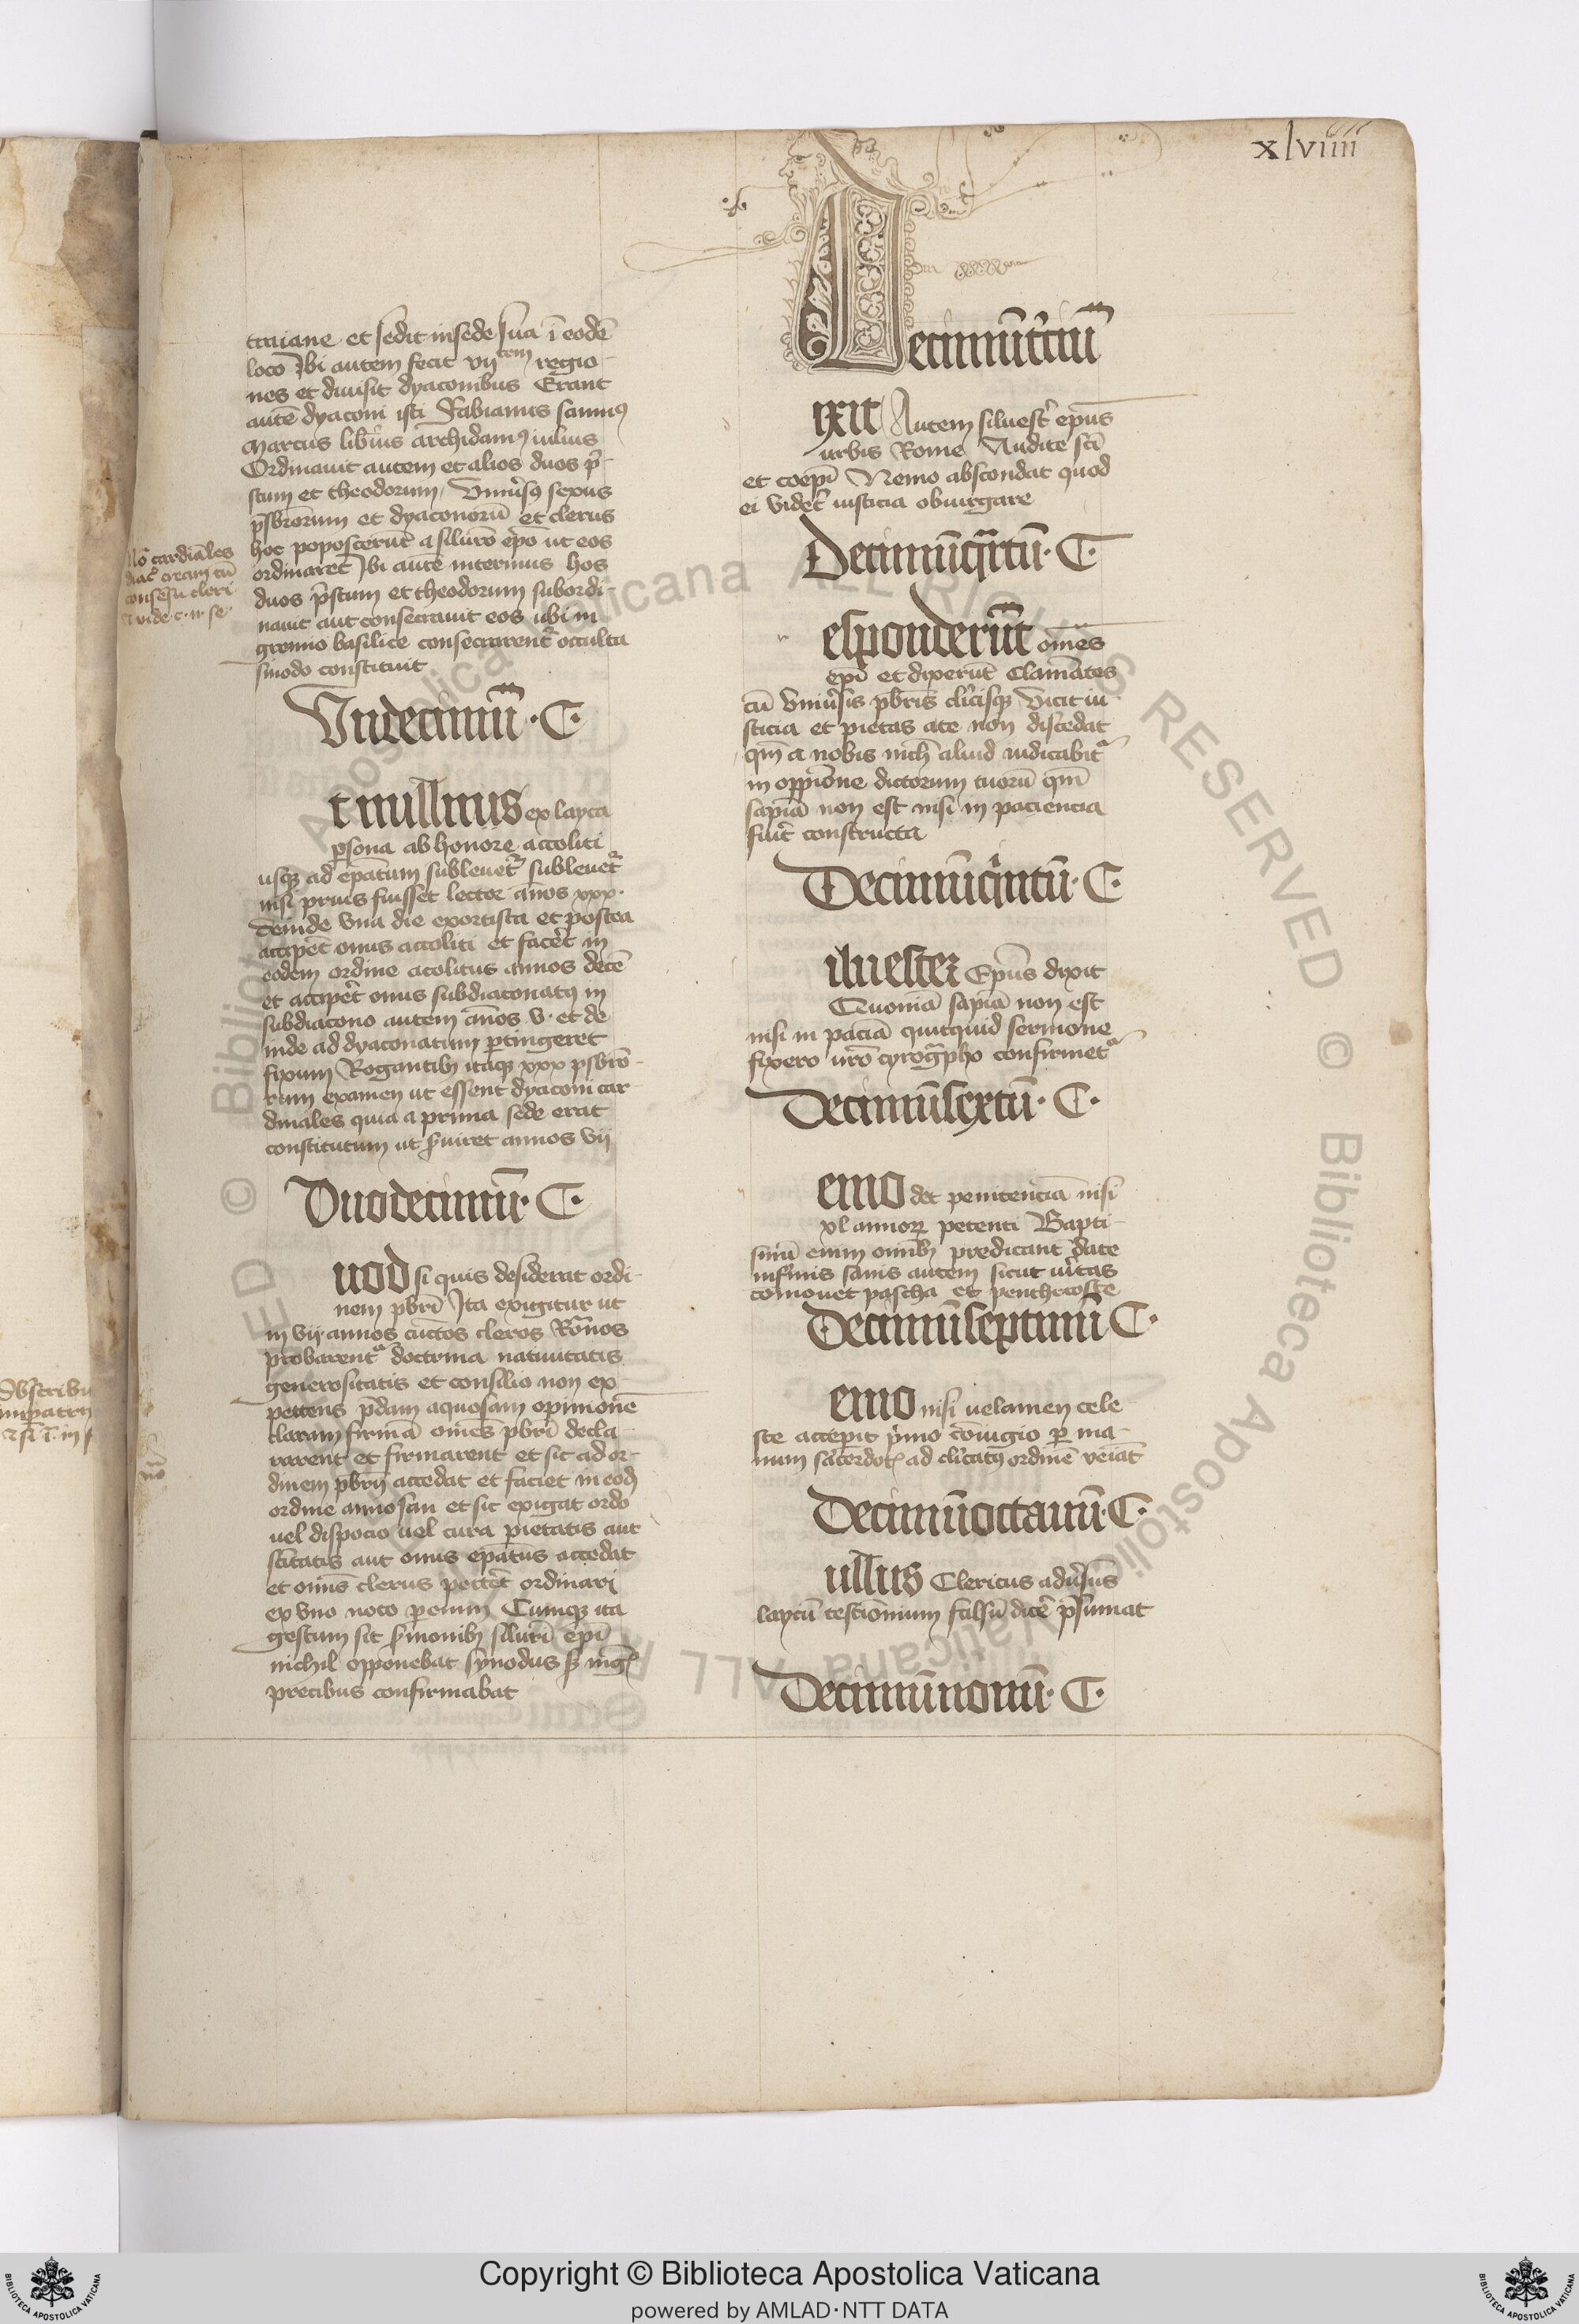 xlviiii
traiane et sedit in sede sua ī eodē
loco Ibi autem fecit vijtem regio-
nes et diuisit dyaconibus Erant
autē dyaconi isti Fabianus samnꝰ
marcus libius archidamꝰ iulius
Ordinauit autem et alios duos p̄-
stum et theodorum Vniuˢꝰ sexus
p̄sbrorum et dyaconorū et clerus
hoc poposcerūt a siluro ep̄o ut eos
ordinaret Ibi autē interius hos
duos p̄stum et theodorum subordi-
nauit aut consecrauit eos ubi in
gremio basilice consecrarent᷑ occulta
sinodo constituit
No cardiāles
diac creant cū
consēsu cleri
vide c. ii se
Vndecimū · C ·
t nullmus ex layca
ꝑsona ab honore accoliti
usqꝫ ad ep̄atum subleuet᷑ subleuet᷑
nisi prius fuisset lector ānos xxx.
deinde vna die exortista et postea
accipēt onus accoliti et facēt in
eodem ordine acolitus annos decē
et accipēt onus subdiaconatꝰ in
subdiacono autem ānos v. et de
inde ad dyaconatum ꝑtingeret
fixum Rogantibꝫ itaqꝫ xxx psbrō-
rum examen ut essent dyaconi car-
dinales quia a prima sede erat
constitutum ut s̄uiret annos vij
Duodecimū · C ·
uod si quis desiderat ordi-
nem pbrī Ita exigitur ut
in vij annos cūctos cleros Rōnos
probarent᷑ doctrina natiuitatis
generositatis et consilio non ex
pettens p̄dam aquosam opinionē
claram firmā om̄es pbrī decla-
rarent et firmarent et sic ad or-
dinem pbrij accedat et faciet in eodꝫ
ordine anno san et sic exigat ordo
uel dispocio uel cura pietatis aut
sc̄itatis aut onus ep̄atus accedat
et om̄s clerus pettēt ordinari
ex vno noto ꝑenim Cumqꝫ ita
gestum sit s̄monibꝫ silurī ep̄i
nichil opponebat synodus sꝫ mḡˢ
precibus confirmabat
ecimūt̄ciū
ixit Autem siluest᷑ ep̄us
urbis Rome Audite sc̄i
et coep̄i Nemo abscondat quod
ei videt᷑ iusticia obiurgare
Decimūqᵃrtū · C ·
esponderūt om̄es
ep̄i et dixerūt Clamātes
cū vniūsis pbrīs cl̄icisqꝫ Vicit iu-
sticia et pietas a te non discedat
qm̄ a nobis nich̄ aliud iudicabit᷑
in oppiōne dictorum tuorū qm̄
sapīa non est nisi in paciencia
fuit᷑ constructa
Decimūqⁱntū · C
iluester Ep̄us dixit
Quoniā sapīa non est
nisi in pacīa quitquid sermone
fixero urō cyrogᵃpho confirmet᷑
Decimūsextū · C ·
emo det penitenciā nisi
xl annorꝝ petenti Bapti-
smū enim omībꝫ predicant date
infirmis sanis autem sicut ūitas
comouet pascha et penthecoste
Decimūseptimū C ·
emo nisi uelamen cele
ste acceperit p̄mo cōiugio ꝑ ma-
num sacerdotꝭ ad cl̄icatꝰ ordinē veiāt
Decimūoctauū · C ·
ullus Clericus adūsus
laycū testimonium falsū dicē p̄sumat
Decimūnonū · C ·